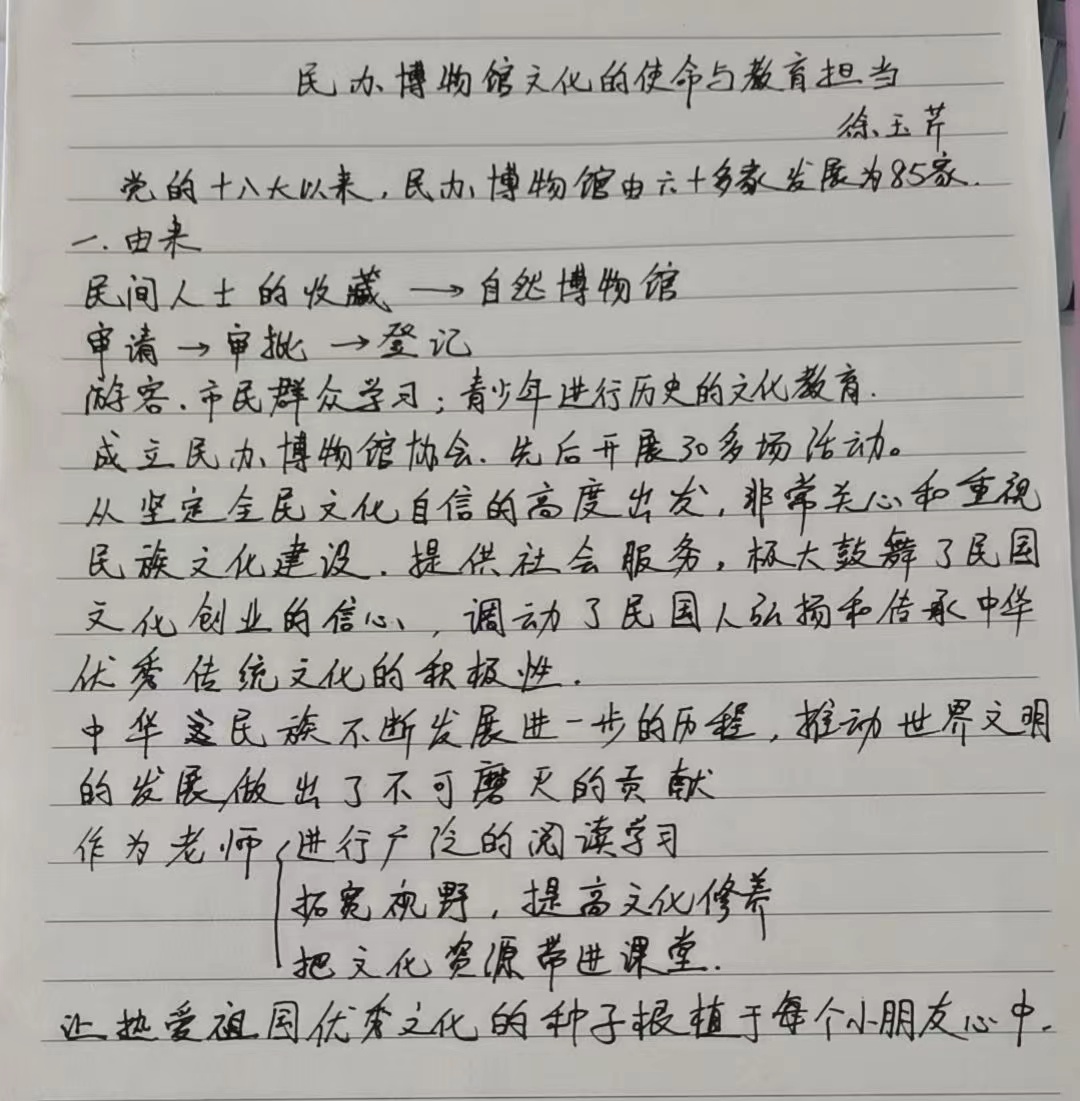 民办博物馆文化的使命与教育担当
徐玉芹
党的十八大以来,民办博物馆由六十多家发展为85家.
一.由来
民间人士的收藏→自然博物馆
申请→审批→登记
游客、市民群众学习;青少年进行历史的文化教育.
成立民办博物馆协会.先后开展30多场活动。
从坚定全民文化自信的高度出发,非常关心和重视
民族文化建设.提供社会服务,极大鼓舞了民国
文化创业的信心,调动了民国人弘扬和传承中华
优秀传统文化的积极性.
中华民族不断发展进一步的历程,推动世界文明
的发展,做出了不可磨灭的贡献
作为老师{进行广泛的阅读学习
拓宽视野,提高文化修养
把文化资源带进课堂.
让热爱祖国优秀文化的种子根植于每个小朋友心中.